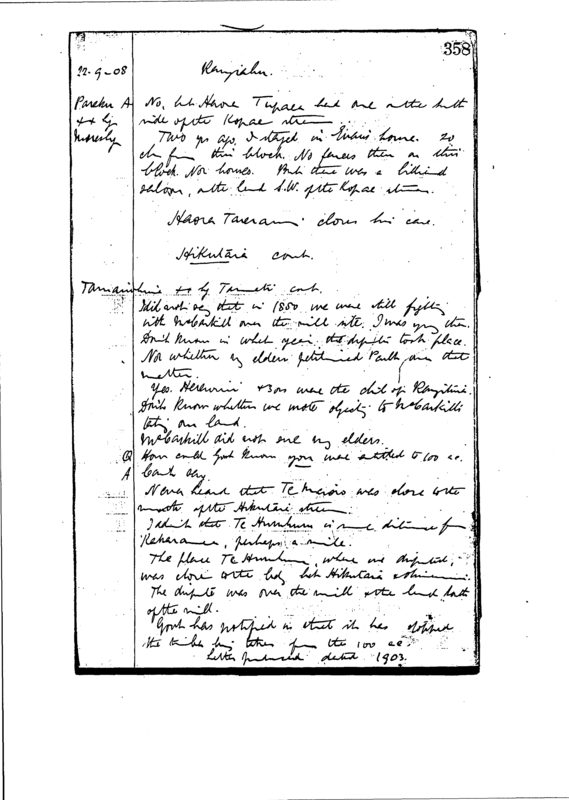 358
22-9-08 Rangiahu.
Pareku A No, but Haora Tupaea had one on the south
xx by side of the Kopae stream
Two yrs ago, I stayed in Evans' house. 20
chs from this block. No fences then on this
block. Nor houses. But there was a billiard
saloon, on the land S.W. of the Kopae stream.
Haora Tareranui closes his case.
Hikutaia cont.
xx by cont.
I did not say that in 1850 we were still fighting
with McCaskill over the mill site. I was young then.
Don't know in what year the dispute took place.
Nor whether my elders petitioned Parlt over that
matter.
Yes. xxxx were the chdn of
Don't know whether we objecting to McCaskill's
taking our land.
McCaskill did not sue my elders.
Q How could Govt know you were entitled to 100 ac.
A Can't say.
Never heard that Te was close to the
mouth of the Hikutaia stream
I admit that Te is some distance from
perhaps a mile.
The place Te where we disputed,
was close to the bdy betn Hikutaia &
The dispute was over the mill & the land south
of the mill.
Govt has notified us that it has stopped
the timber being taken from the 100 ac.
Letter produced dated 1903.